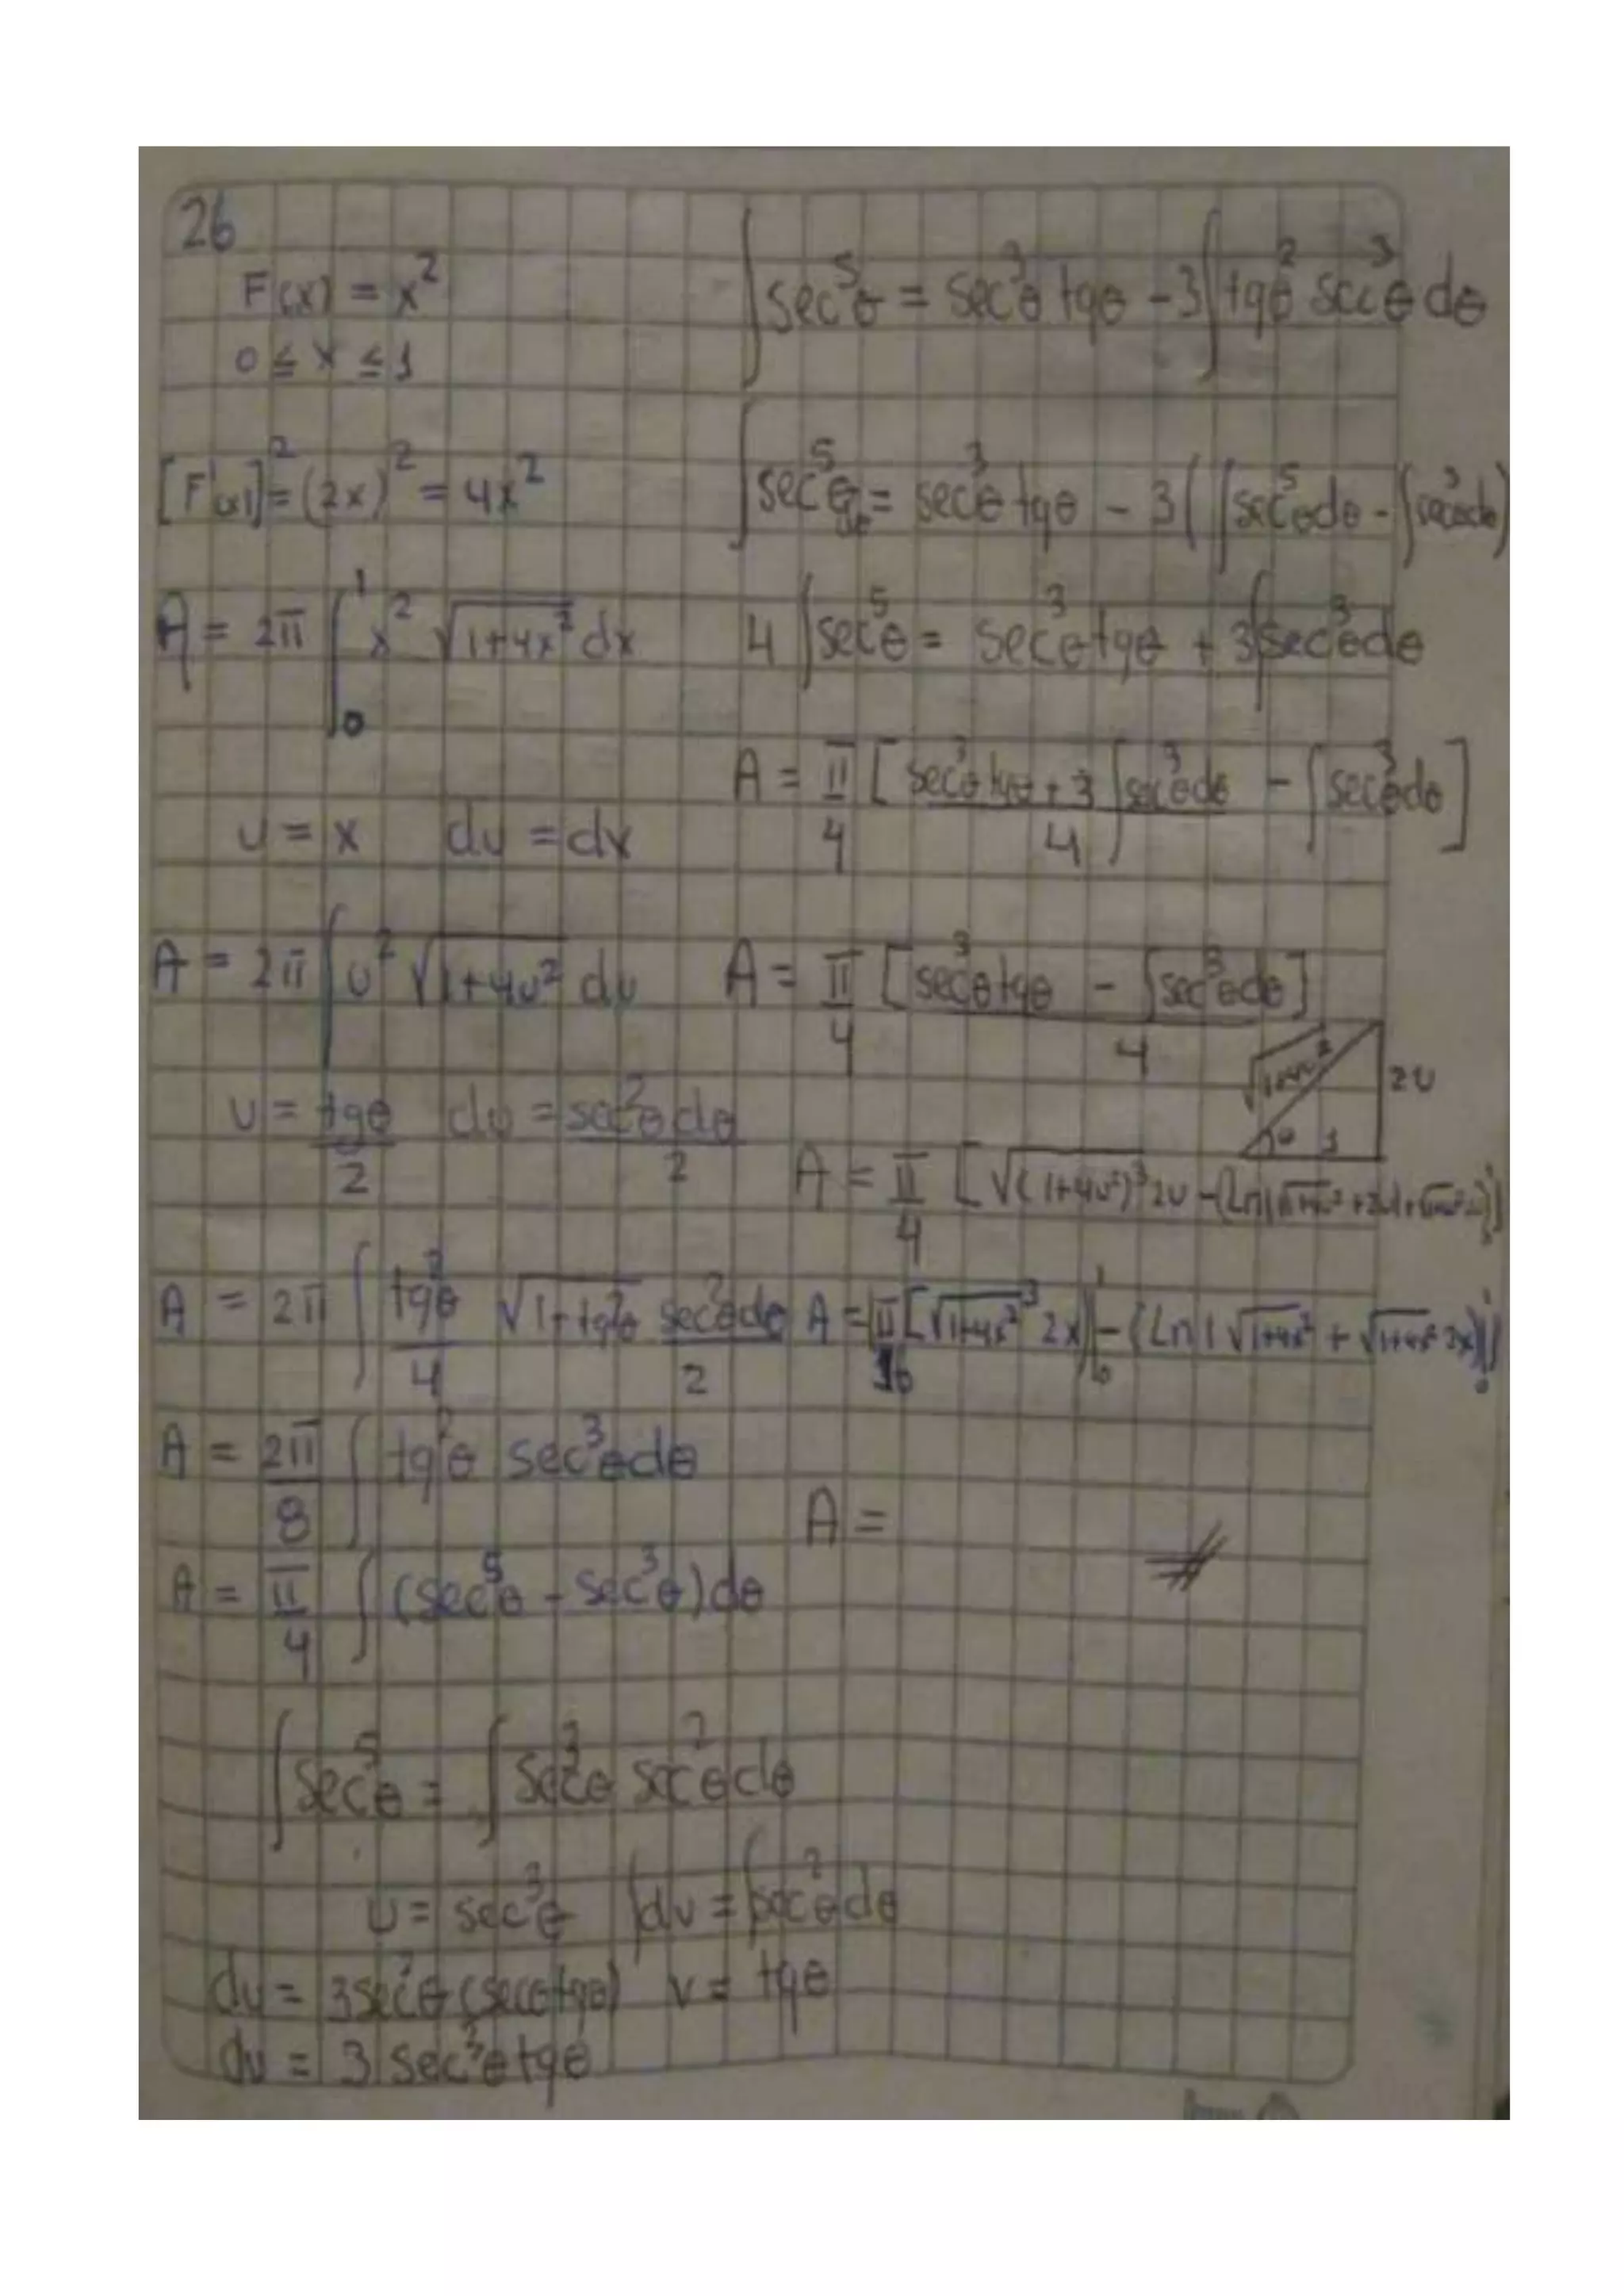 26
F(x) = x²
0 ≤ x ≤ 1
[F'(x)]² = (2x)² = 4x²
A = 2π ∫₀¹ x² √(1+4x²) dx
u = x   du = dx
A = 2π ∫ u² √(1+4u²) du
u = tgθ/2   du = sec²θdθ/2
A = 2π ∫ tg²θ/4 √(1+tg²θ) sec²θdθ/2
A = 2π/8 ∫ tg²θ sec³θdθ
A = π/4 ∫ (sec⁵θ - sec³θ)dθ
∫ sec⁵θ = ∫ sec³θ sec²θdθ
u = sec³θ   ∫dv = ∫sec²θdθ
du = 3sec²θ(secθtgθ)   v = tgθ
du = 3 sec³θtgθ
∫ sec⁵θ = sec³θ tgθ - 3 ∫ tg²θ sec³θ dθ
∫ sec⁵θdθ = sec³θ tgθ - 3( ∫sec⁵θdθ - ∫sec³θdθ)
4 ∫ sec⁵θ = sec³θtgθ + 3∫sec³θdθ
A = π/4 [ (sec³θtgθ + 3 ∫sec³θdθ)/4 - ∫sec³θdθ ]
A = π/4 [ (sec³θtgθ - ∫sec³θdθ)/4 ]
√(1+4u²)   2u
θ   1
A = π/4 [ √(1+4u²)³ 2u - (Ln|√(1+4u²) + 2u| + √(1+4u²) 2u)]
A = π/16 [√(1+4x²)³ 2x)|₀¹ - (Ln|√(1+4x²) + √(1+4x²) 2x)|]
A =